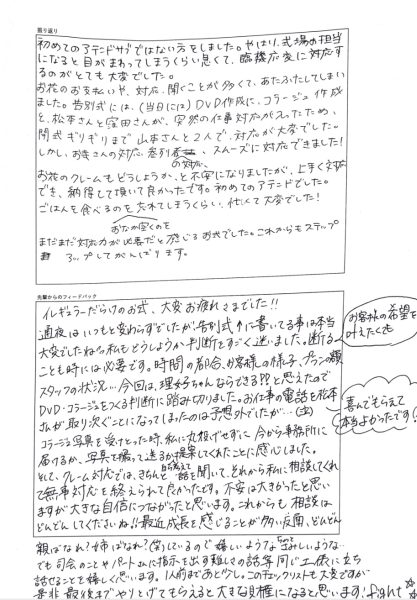 振り返り
初めてのアテンドサブではない方をしました。やはり、式場の担当
になると目がまわってしまうくらい忙しくて、臨機応変に対応す
るのがとても大変でした。
お花のお支払いや、対応、聞くことが多くて、あたふたしてしまい
ました。告別式には、(当日には)DVD作成に、コラージュ作成
と、松本さんと窪田さんが、突然の仕事対応が入ったため、
開式ギリギリまで山本さんと2人で、対応が大変でした。
しかし、お寺さんの対応、参列者の対応、スムーズに対応できました!
お花のクレームもどうしようか、と不安になりましたが、上手く対応
でき、納得して頂いて良かったです。初めてのアテンドでした。
ごはんを食べるのを忘れてしまうくらい、忙しくて大変でした!
おなか空くのを
まだまだ対応力が必要だと感じるお式でした。これからもステップ
アップしてがんばります。
先輩からのフィードバック
イレギュラーだらけのお式、大変お疲れさまでした!!
通夜はいつもと変わらずでしたが告別式↑に書いてる事は本当
大変でしたね。私もどうしようか判断をすごく迷いました。断る
ことも時には必要です。時間の都合、お客様の様子、プランの額
スタッフの状況…今回は、理紗ちゃんならできる!?と思えたので
DVD・コラージュをつくる判断に踏み切りました。お仕事の電話を松本
さんが取り次ぐことになってしまったのは予想外でしたが…(笑)
コラージュ写真を受けとった時、私に丸投げせずに今から事務所に
届けるか、写真を撮って送るか提案してくれたことに感心しました。
そして、クレーム対応では、きちんと立ち止まって話を聞いて、それから私に相談してくれ
て無事対応を終えられて良かったです。不安は大きかったと思い
ますが大きな自信につながったと思います。これからも相談は
どんどんしてくださいね!!最近成長を感じることが多い反面、どんどん
親ばなれ?姉ばなれ?(笑)しているので嬉しいようなちょっとさみしいような
でも司会のことやパートさんに指示を出す難しさの話等同じ目線に立ち
話せることを嬉しく思います。1人前まであと少し。このチェックリストも大変ですが
是非最後までやりとげてもらえると大きな財産になると思います!fight☆
お客さんの希望を
叶えたくも
喜んでもらえて
本当よかったです!